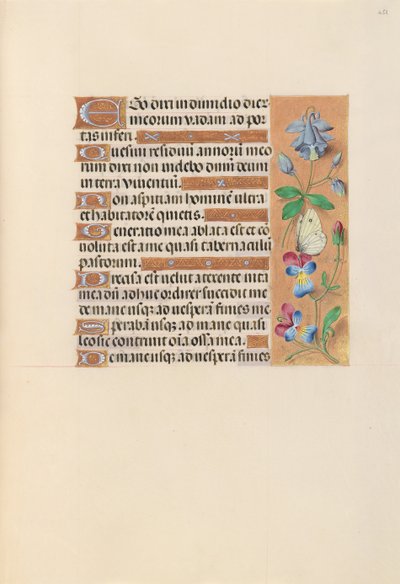 Ego dixi in dimidio dier
meorum vadam ad por
tas inferi.
Quesivi residuū annorū meo
rum dixi non videbo dnm̄ deum
in terra viventiū.
Non aspitiam hominē ultra
et habitatorē quietis.
Generatio mea ablata est et cō
voluta est a me quasi tabernaculū
pastorum.
Precisa est velut a texente vita
mea dū adhuc ordirer succidit me
de mane usq; ad vesperā finies me
Sperabā usq; ad mane quasi
leo sic contrivit oīa ossa mea.
De mane usq; ad vesperā finies